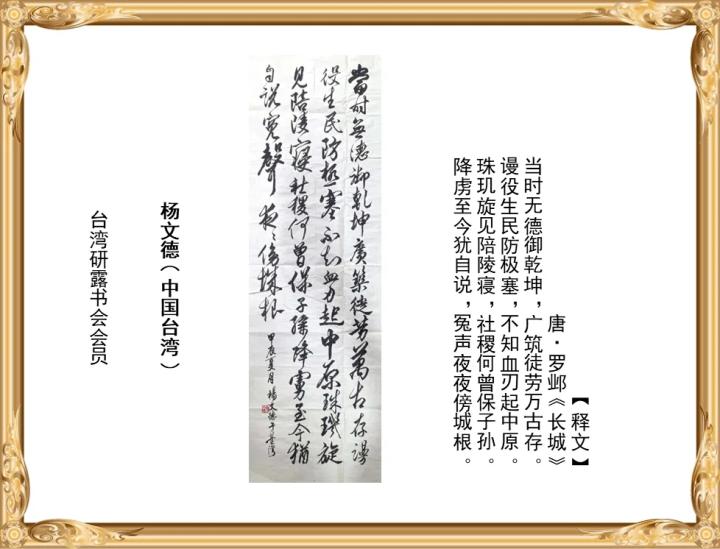 【释文】
唐·罗邺《长城》
当时无德御乾坤，广筑徒劳万古存。
谩役生民防极塞，不知血刃起中原。
珠玑旋见陪陵寝，社稷何曾保子孙。
降虏至今犹自说，冤声夜夜傍城根。
當时無德御乾坤廣築徒劳萬古存謾
役生民防極塞不知血刃起中原珠璣旋
見陪陵寢社稷何曾保子孫降虜至今猶
自说冤聲夜〻傍城根 甲辰夏月楊文德于臺湾
杨文德（中国台湾）
台湾研露书会会员